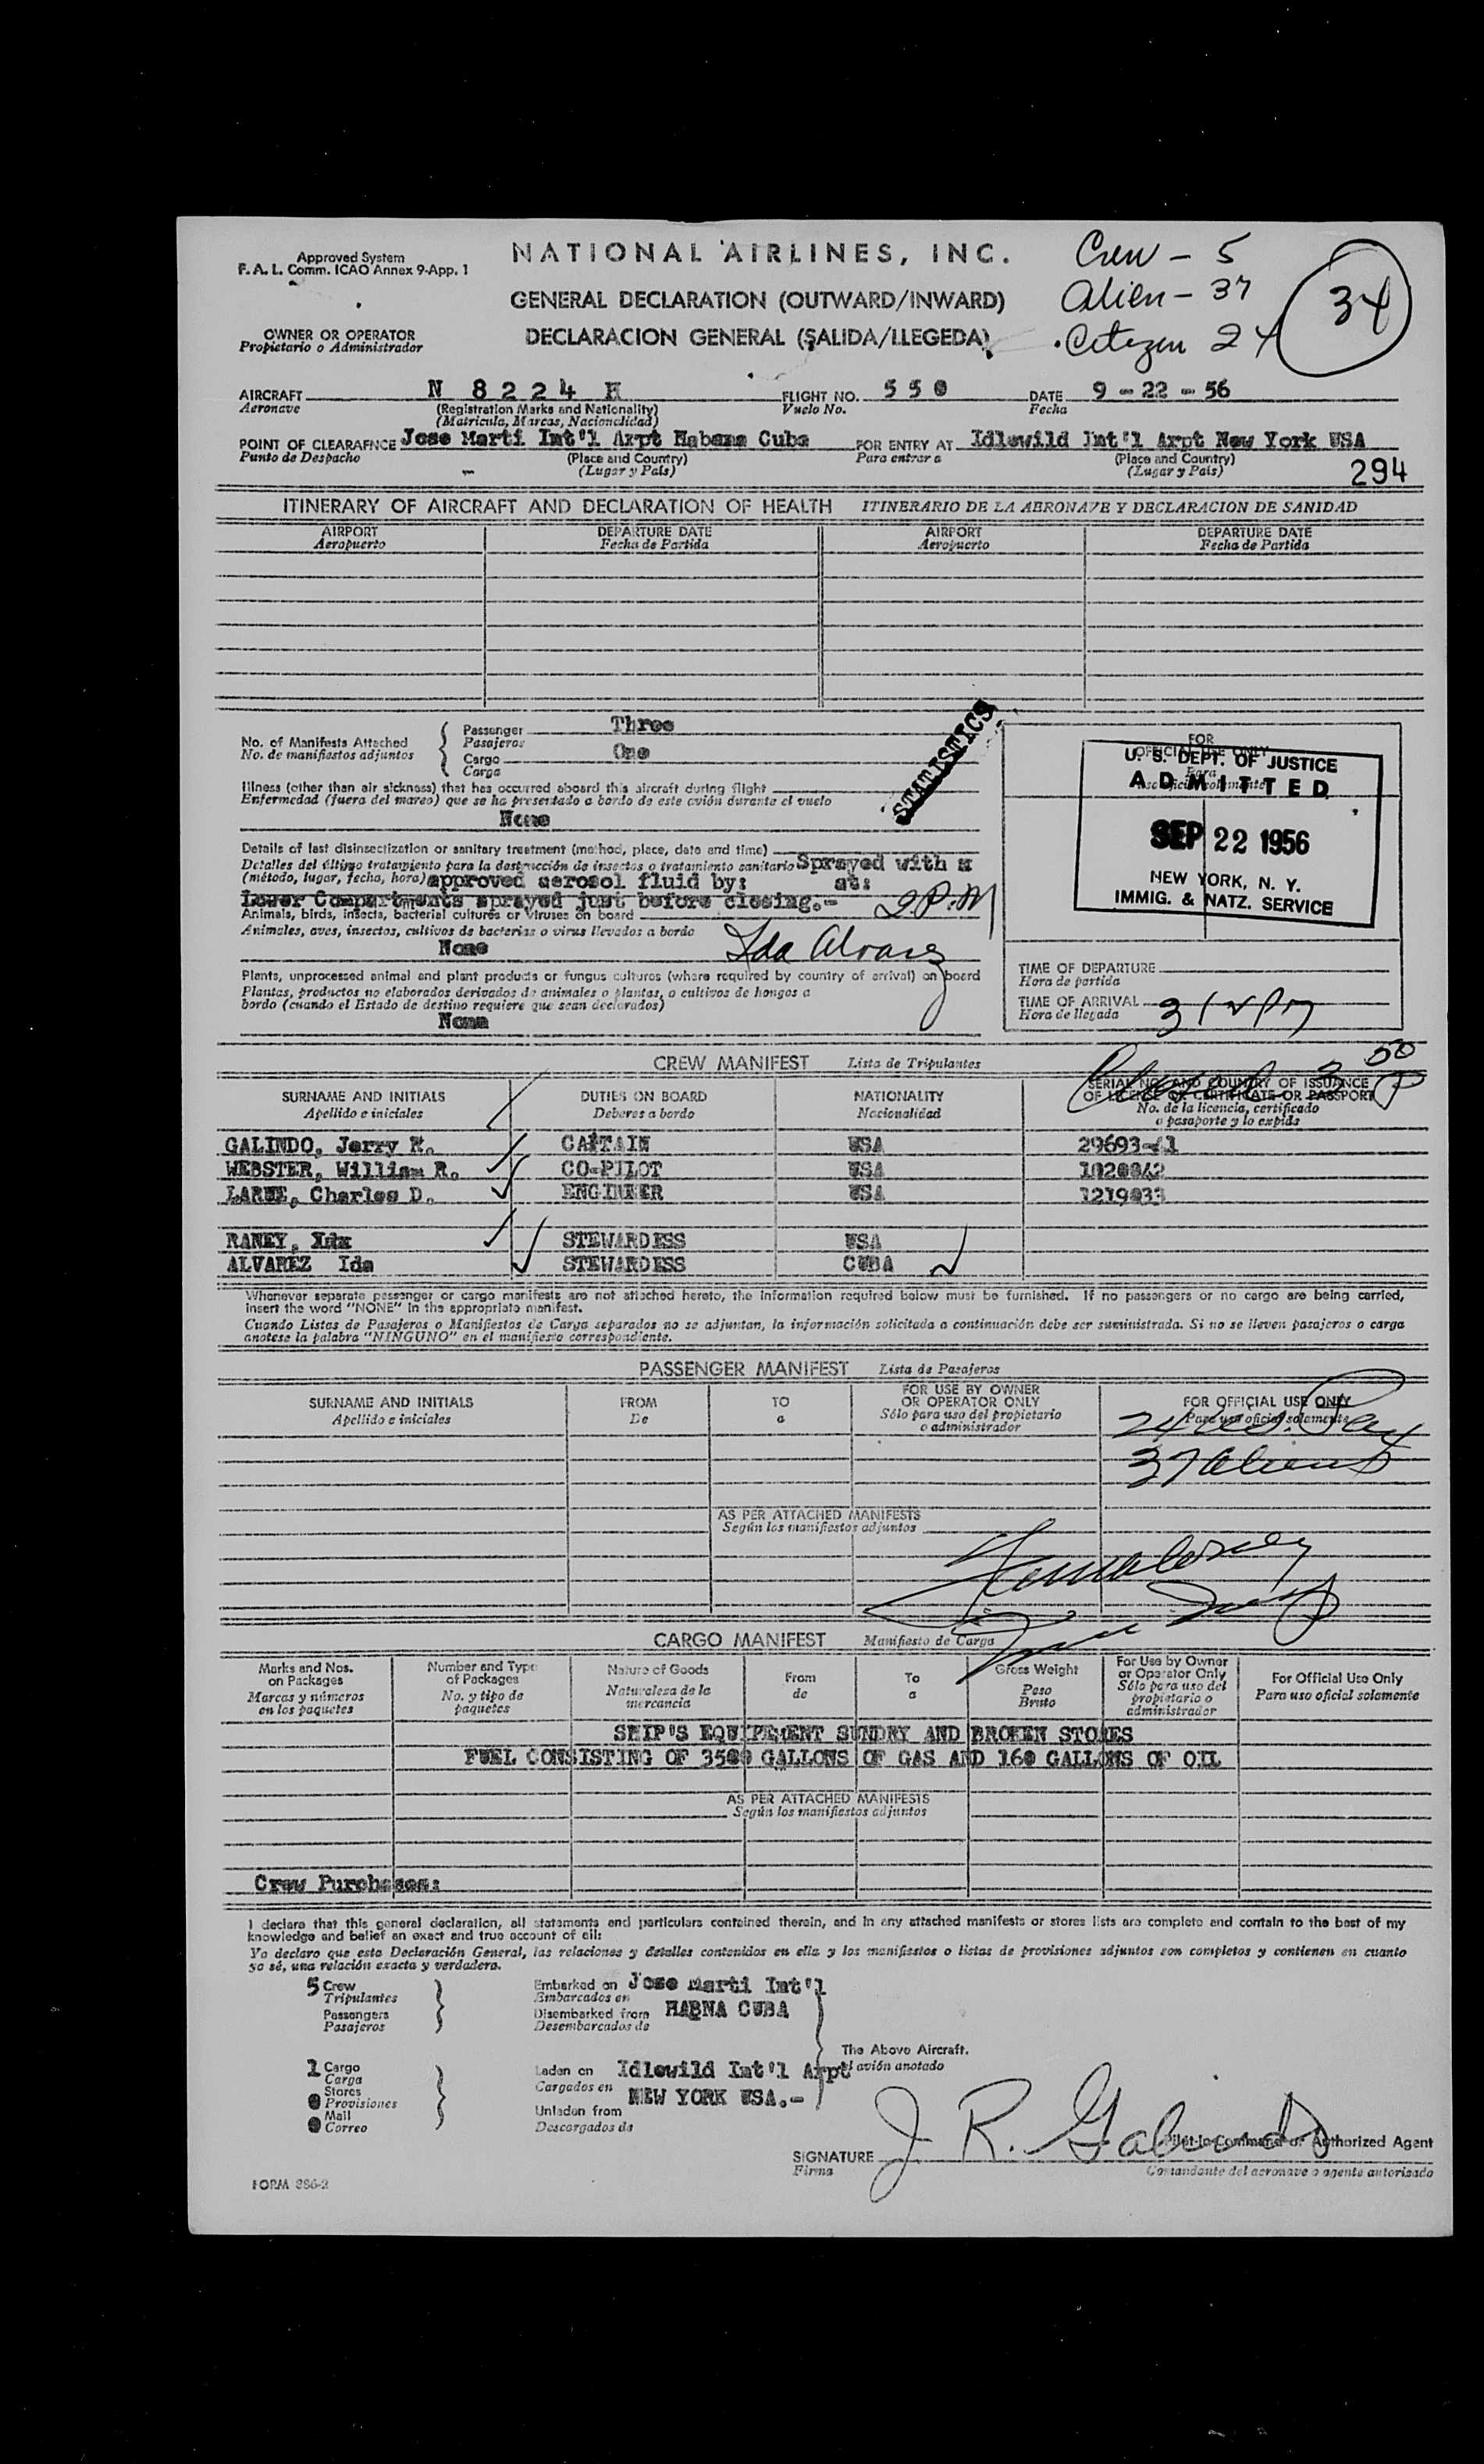 Approved System
F. A. L. Comm. ICAO Annex 9-App. 1
NATIONAL AIRLINES, INC.
GENERAL DECLARATION (OUTWARD/INWARD)
DECLARACION GENERAL (SALIDA/LLEGEDA)
Crew - 5
Alien - 37
Citizen 24
34
OWNER OR OPERATOR
Propietario o Administrador
AIRCRAFT N 8 2 2 4 H FLIGHT NO. 5 5 0 DATE 9 - 22 - 56
Aeronave (Registration Marks and Nationality) Vuelo No. Fecha
(Matricula, Marcas, Nacionalidad)
POINT OF CLEARAFNCE Jose Marti Int'l Arpt Habana Cuba FOR ENTRY AT Idlewild Int'l Arpt New York USA
Punto de Despacho (Place and Country) Para entrar a (Place and Country)
(Lugar y País) (Lugar y País)
294
ITINERARY OF AIRCRAFT AND DECLARATION OF HEALTH ITINERARIO DE LA AERONAVE Y DECLARACION DE SANIDAD
AIRPORT DEPARTURE DATE AIRPORT DEPARTURE DATE
Aeropuerto Fecha de Partida Aeropuerto Fecha de Partida
No. of Manifests Attached
No. de manifiestos adjuntos
Passenger Three
Pasajeros
Cargo One
Carga
STATISTICS
Illness (other than air sickness) that has occurred aboard this aircraft during flight
Enfermedad (fuera del mareo) que se ha presentado a bordo de este avión durante el vuelo
None
Details of last disinsectization or sanitary treatment (method, place, date and time)
Detalles del último tratamiento para la destrucción de insectos o tratamiento sanitario Sprayed with
(método, lugar, fecha, hora) approved aerosol fluid by: at:
Lower Compartments sprayed just before closing.- 2 P.M
Animals, birds, insects, bacterial cultures or Viruses on board
Animales, aves, insectos, cultivos de bacterias o virus llevados a bordo
None
Ida Alvarez
Plants, unprocessed animal and plant products or fungus cultures (where required by country of arrival) on board
Plantas, productos no elaborados derivados de animales o plantas, o cultivos de hongos a
bordo (cuando el Estado de destino requiere que sean declarados)
None
FOR
OFFICIAL USE ONLY
Para
uso oficial solamente
U. S. DEPT. OF JUSTICE
ADMITTED
SEP 22 1956
NEW YORK, N. Y.
IMMIG. & NATZ. SERVICE
TIME OF DEPARTURE
Hora de partida
TIME OF ARRIVAL
Hora de llegada
CREW MANIFEST Lista de Tripulantes
SURNAME AND INITIALS DUTIES ON BOARD NATIONALITY SERIAL NO. AND COUNTRY OF ISSUANCE
OF LICENSE OR CERTIFICATE OR PASSPORT
Apellido e iniciales Deberes a bordo Nacionalidad No. de la licencia, certificado
o pasaporte y lo expida
GALINDO, Jerry R. CAPTAIN USA 29693-41
WEBSTER, William R. CO-PILOT USA 1020042
LARUE, Charles D. ENGINEER USA 1219033
RANEY, STEWARDESS USA
ALVAREZ Ida STEWARDESS CUBA
Whenever separate passenger or cargo manifests are not attached hereto, the information required below must be furnished. If no passengers or no cargo are being carried,
insert the word "NONE" in the appropriate manifest.
Cuando Listas de Pasajeros o Manifiestos de Carga separados no se adjuntan, la información solicitada a continuación debe ser suministrada. Si no se lleven pasajeros o carga
anotese la palabra "NINGUNO" en el manifiesto correspondiente.
PASSENGER MANIFEST Lista de Pasajeros
SURNAME AND INITIALS FROM TO FOR USE BY OWNER
OR OPERATOR ONLY FOR OFFICIAL USE ONLY
Apellido e iniciales De a Sólo para uso del propietario
o administrador Para uso oficial solamente
37 Aliens
AS PER ATTACHED MANIFESTS
Según los manifiestos adjuntos
CARGO MANIFEST Manifiesto de Carga
Marks and Nos.
on Packages
Marcas y números
en los paquetes
Number and Type
of Packages
No. y tipo de
paquetes
Nature of Goods
Naturaleza de la
mercancia
From
de
To
a
Gross Weight
Peso
Bruto
For Use by Owner
or Operator Only
Sólo para uso del
propietario o
administrador
For Official Use Only
Para uso oficial solamente
SHIP'S EQUIPEMENT SUNDRY AND BROKEN STORES
FUEL CONSISTING OF 3500 GALLONS OF GAS AND 160 GALLONS OF OIL
AS PER ATTACHED MANIFESTS
Según los manifiestos adjuntos
Crew Purchases:
I declare that this general declaration, all statements and particulars contained therein, and in any attached manifests or stores lists are complete and contain to the best of my
knowledge and belief an exact and true account of all:
Yo declaro que esta Declaración General, las relaciones y detalles contenidos en ella y los manifiestos o listas de provisiones adjuntos son completos y contienen en cuanto
yo sé, una relación exacta y verdadera.
5 Crew
Tripulantes
Passengers
Pasajeros
Embarked on Jose Marti Int'l
Embarcados en
Disembarked from HABNA CUBA
Desembarcados de
The Above Aircraft.
avión anotado
1 Cargo
Carga
Stores
Provisiones
Mail
Correo
Laden on Idlewild Int'l Arpt
Cargados en NEW YORK USA.-
Unladen from
Descargados de
SIGNATURE J. R. Galindo
Firma
Pilot-in-Command or Authorized Agent
Comandante del aeronave o agente autorizado
FORM 886-2